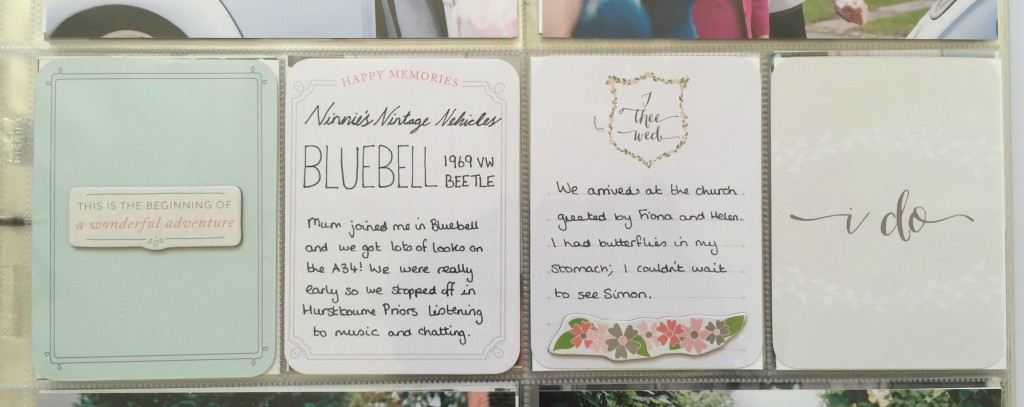 THIS IS THE BEGINNING OF
a wonderful adventure
HAPPY MEMORIES
Ninnie's Nintage Nehicles
BLUEBELL 1969 VW
BEETLE
Mum joined me in Bluebell
and we got lots of looks on
the A34! We were really
early so we stopped off in
Hurstbourne Priors listening
to music and chatting.
I
thee
wed
We arrived at the church
greeted by Fiona and Helen.
I had butterflies in my
stomach; I couldn't wait
to see Simon.
i do